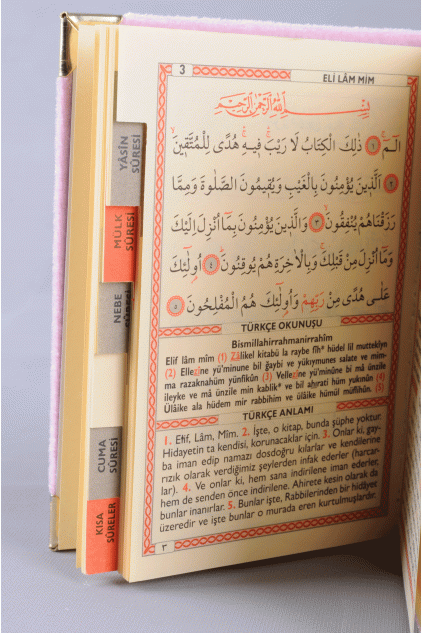 3
ELİ LÂM MİM
بِسْمِ اللّٰهِ الرَّحْمٰنِ الرَّحِيمِ
الٓمٓ ﴿١﴾ ذٰلِكَ الْكِتَابُ لَا رَيْبَ فِيهِ هُدًى لِلْمُتَّقِينَ
﴿٢﴾ اَلَّذِينَ يُؤْمِنُونَ بِالْغَيْبِ وَيُقِيمُونَ الصَّلٰوةَ وَمِمَّا
رَزَقْنَاهُمْ يُنْفِقُونَ ﴿٣﴾ وَالَّذِينَ يُؤْمِنُونَ بِمَٓا اُنْزِلَ اِلَيْكَ
وَمَٓا اُنْزِلَ مِنْ قَبْلِكَ وَبِالْاٰخِرَةِ هُمْ يُوقِنُونَ ﴿٤﴾ اُو۬لٰٓئِكَ
عَلٰى هُدًى مِنْ رَبِّهِمْ وَاُو۬لٰٓئِكَ هُمُ الْمُفْلِحُونَ ﴿٥﴾
TÜRKÇE OKUNUŞU
Bismillahirrahmanirrahîm
Elif lâm mîm (1) Zâlikel kitâbü la raybe fîh* hüdel lil mutteklyn
(2) Ellezîne yü'minune bil ğaybi ve yükıymunes salate ve mim-
ma razaknahüm yünfikûn (3) Vellezîne yü'minûne bi mâ ünzile
ileyke ve mâ ünzile min kablik* ve bil ahırati hüm yukınûn (4)
Ülâike ala hüdem mir rabbihim ve ülâike hümül müflihûn. (5)
TÜRKÇE ANLAMI
1. Elif, Lâm, Mîm. 2. İşte, o kitap, bunda şüphe yoktur.
Hidayetin ta kendisi, korunacaklar için. 3. Onlar ki, gay-
ba iman edip namazı dosdoğru kılarlar ve kendilerine
rızık olarak verdiğimiz şeylerden infak ederler (harcar-
lar). 4. Ve onlar ki, hem sana indirilene iman ederler,
hem de senden önce indirilene. Ahirete kesin olarak da
bunlar inanırlar. 5. Bunlar işte, Rabbilerinden bir hidayet
üzeredir ve işte bunlar o murada eren kurtulmuşlardır.
٣
YÂSİN
SÛRESİ
MÜLK
SÛRESİ
NEBE
SÛRESİ
CUMA
SÛRESİ
KISA
SÛRELER